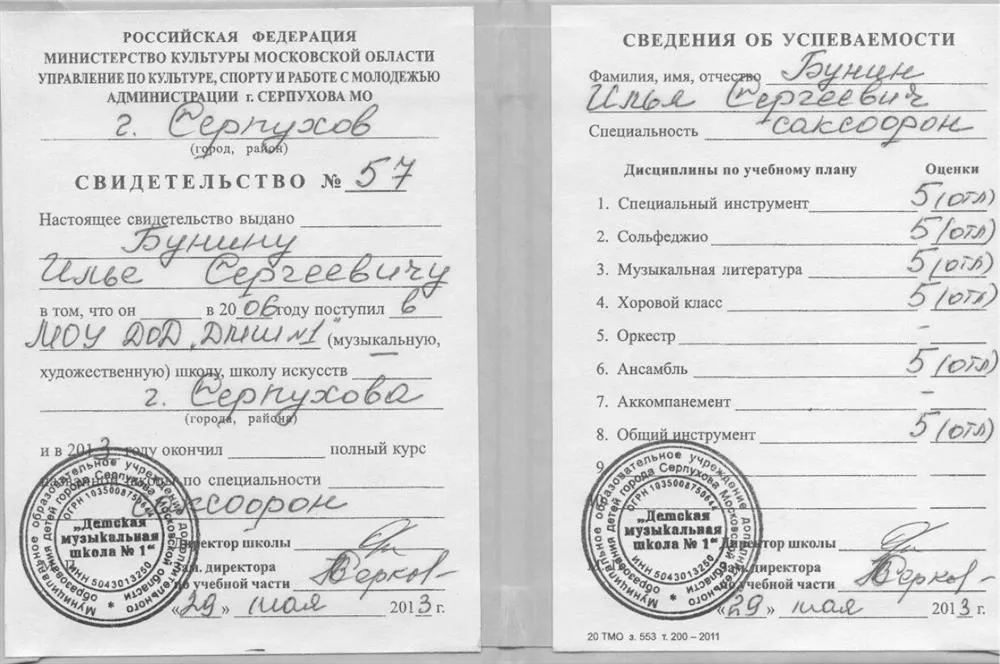 РОССИЙСКАЯ ФЕДЕРАЦИЯ
МИНИСТЕРСТВО КУЛЬТУРЫ МОСКОВСКОЙ ОБЛАСТИ
УПРАВЛЕНИЕ ПО КУЛЬТУРЕ, СПОРТУ И РАБОТЕ С МОЛОДЕЖЬЮ
АДМИНИСТРАЦИИ г. СЕРПУХОВА МО
г. Серпухов
(город, район)
СВИДЕТЕЛЬСТВО № 57
Настоящее свидетельство выдано
Бунину
Илье Сергеевичу
в том, что он в 2006 году поступил в
МОУ ДоД „ДМШ №1" (музыкальную,
художественную) школу, школу искусств
г. Серпухова
(города, района)
и в 2013 году окончил полный курс
названной школы по специальности
саксофон
Директор школы
Зам. директора
по учебной части
«29» мая 2013 г.
Муниципальное образовательное учреждение дополнительного
образования детей города Серпухова Московской области
ОГРН 1035008750644
„Детская
музыкальная
школа № 1"
ИНН 5043013250
СВЕДЕНИЯ ОБ УСПЕВАЕМОСТИ
Фамилия, имя, отчество Бунин
Илья Сергеевич
Специальность саксофон
Дисциплины по учебному плану Оценки
1. Специальный инструмент 5 (отл)
2. Сольфеджио 5 (отл)
3. Музыкальная литература 5 (отл)
4. Хоровой класс 5 (отл)
5. Оркестр –
6. Ансамбль 5 (отл)
7. Аккомпанемент –
8. Общий инструмент 5 (отл)
9
Директор школы
Зам. директора
по учебной части
«29» мая 2013 г.
Муниципальное образовательное учреждение дополнительного
образования детей города Серпухова Московской области
ОГРН 1035008750644
„Детская
музыкальная
школа № 1"
ИНН 5043013250
20 ТМО з. 553 т. 200 – 2011